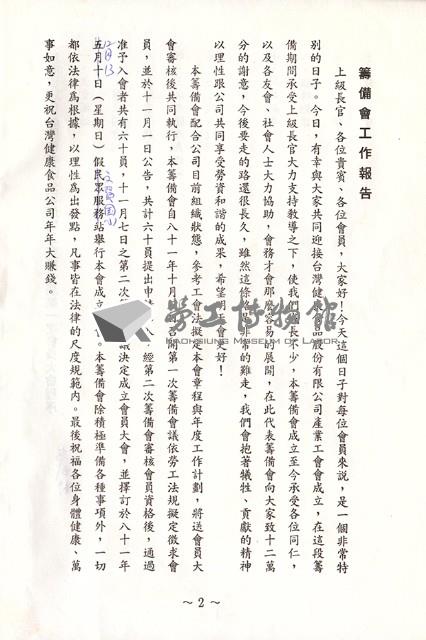 籌備會工作報告
上級長官、各位貴賓、各位會員,大家好!今天這個日子對每位會員來說,是一個非常特
別的日子。今日,有幸與大家共同迎接台灣健康食品股份有限公司產業工會會成立,在這段籌
備期間承受上級長官大力支持教導之下,使我們成長不少,本籌備會成立至今承受各位同仁,
以及各友會、社會人士大力協助,會務才會那麼容易的展開,在此代表籌備會向大家致十二萬
分的謝意,今後要走的路還很長久,雖然這條路是非常的難走,我們會抱著犧牲、貢獻的精神
以理性跟公司共同享受勞資和諧的成果,希望明天會更好!
本籌備會配合公司目前組織狀態,參考工會法擬定本會章程與年度工作計劃,將送會員大
會審核後共同執行,本籌備會自八十一年十月 召開第一次籌備會議依勞工法規擬定徵求會
員,並於十一月一日公告,共計六十員提出申 人 經第二次籌備會審核會員資格後,通過
准予入會者共有六十員,十一月七日之第二次 議決定成立會員大會,並擇訂於八十一年
五月十日(星期日)假民眾服務站舉行本會成立 。本籌備會除積極準備各種事項外,一切
都依法律為根據,以理性為出發點,凡事皆在法律的尺度規範內。最後祝福各位身體健康、萬
事如意,更祝台灣健康食品公司年年大賺錢。
12月13
勞工博物館
KAOHSIUNG MUSEUM OF LABOR
~2~